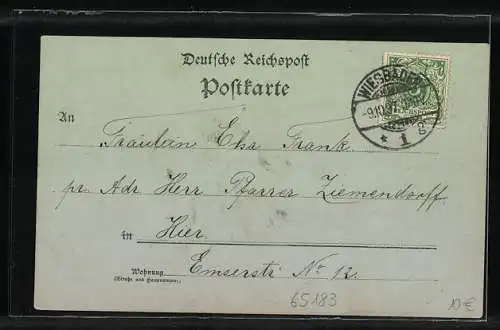 Deutsche Reichspost
Postkarte
WIESBADEN
-9.10.97.
* 1 g
An
Fräulein Elsa Frank
pr. Adr. Herr Pfarrer Ziemendorff
in Hier
Wohnung
(Straße und Hausnummer)
Emserstr. No 12.
65183
10€